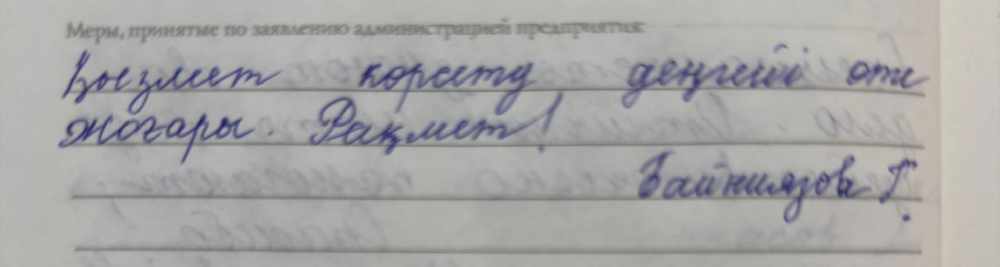 Меры, принятые по заявлению администрацией предприятия:
Қызмет көрсету деңгейі өте
жоғары. Рақмет!
Байниязова Г.